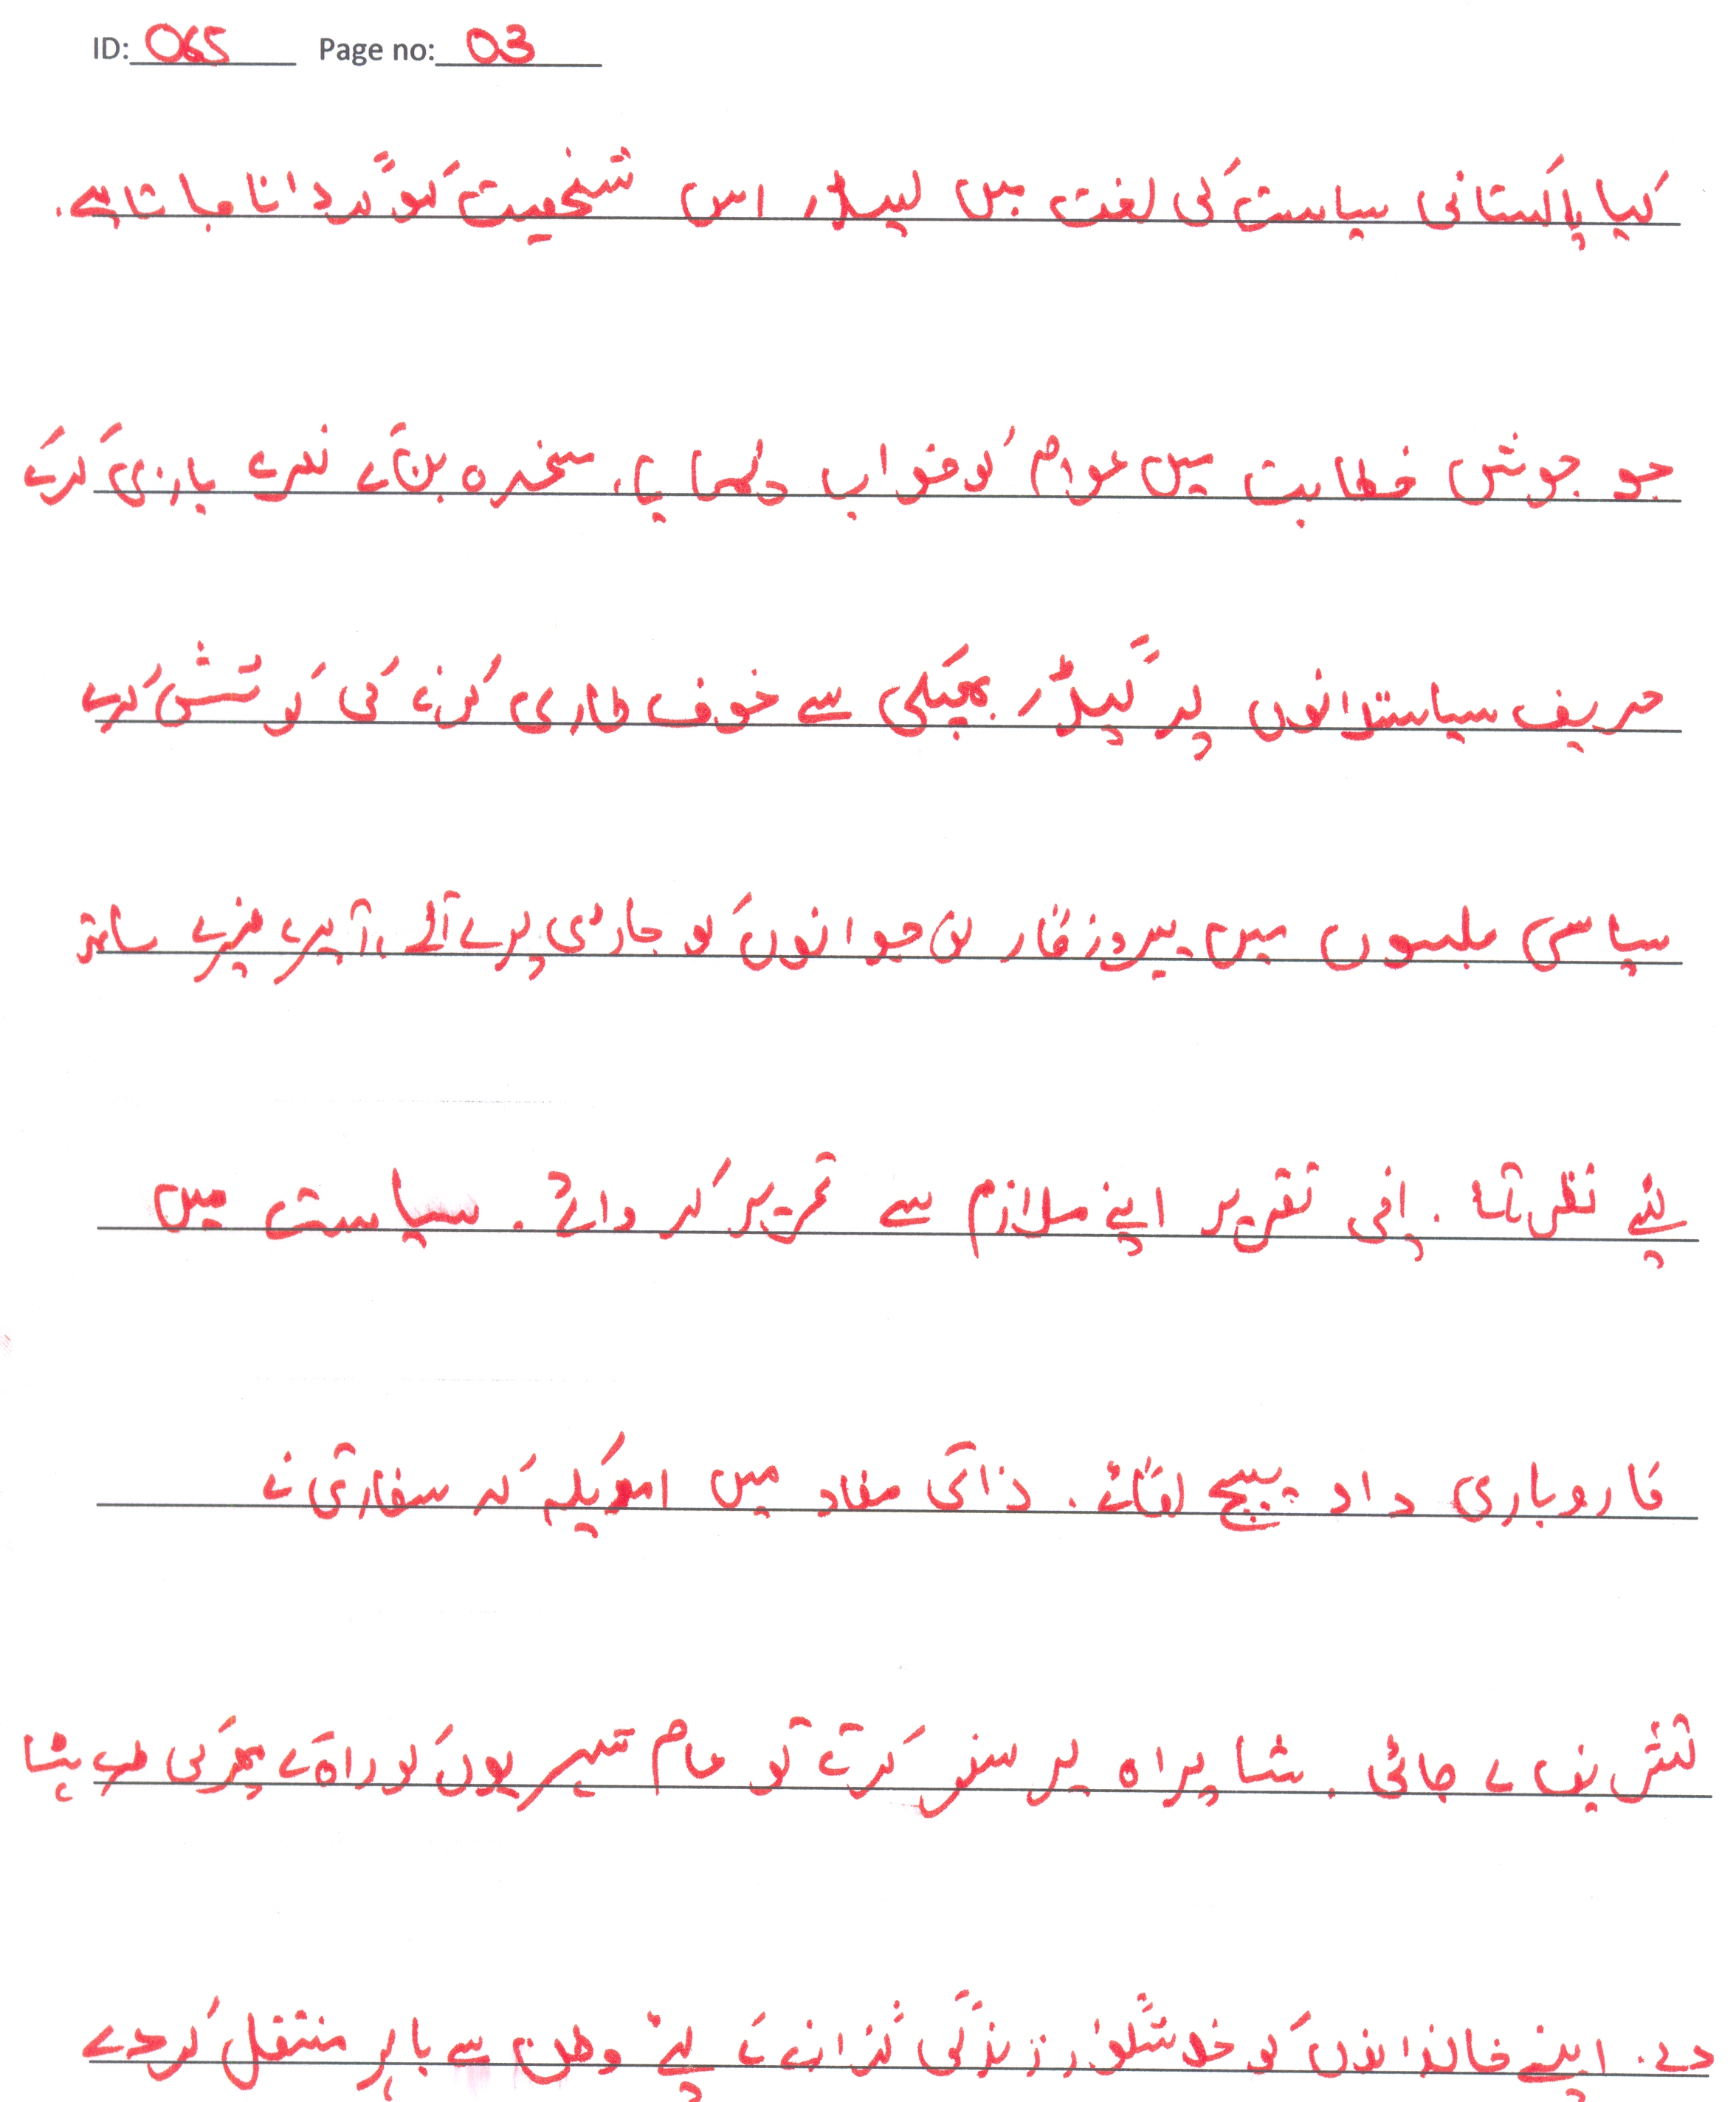 ID: 065 Page no: 03
کیا پاکستانی سیاست کی لغت میں لیڈر اس شخصیت کو گردانا جاتا ہے۔
جو جوش خطابت میں عوام کو خواب دکھا یا، سخرہ بن کے نعرے بازی کرکے
حریف سیاستدانوں پر گیڈر بھبکی سے خوف طاری کرنے کی کوشش کرے
سیاسی جلسوں میں بیروزگار نوجوانوں کو جا رہی پرے آئے، ساتھ
لئے نظر آتا۔ اپنی تقریر اپنے ملازم سے تحریر کر وائے۔ سیاست میں
کاروباری داد پیچ لگائے۔ ذاتی مفاد میں امریکہ کہ سفارتی نے
تشریف لے جائی۔ شاہراہ پر سفر کرتے تو عام شہریوں کو راہ کے پھر کی طرح ہٹا
دے۔ اپنے خاندانوں کو خوشگوار زندگی گزارنے کے لئے وطن سے باہر منتقل کر دے